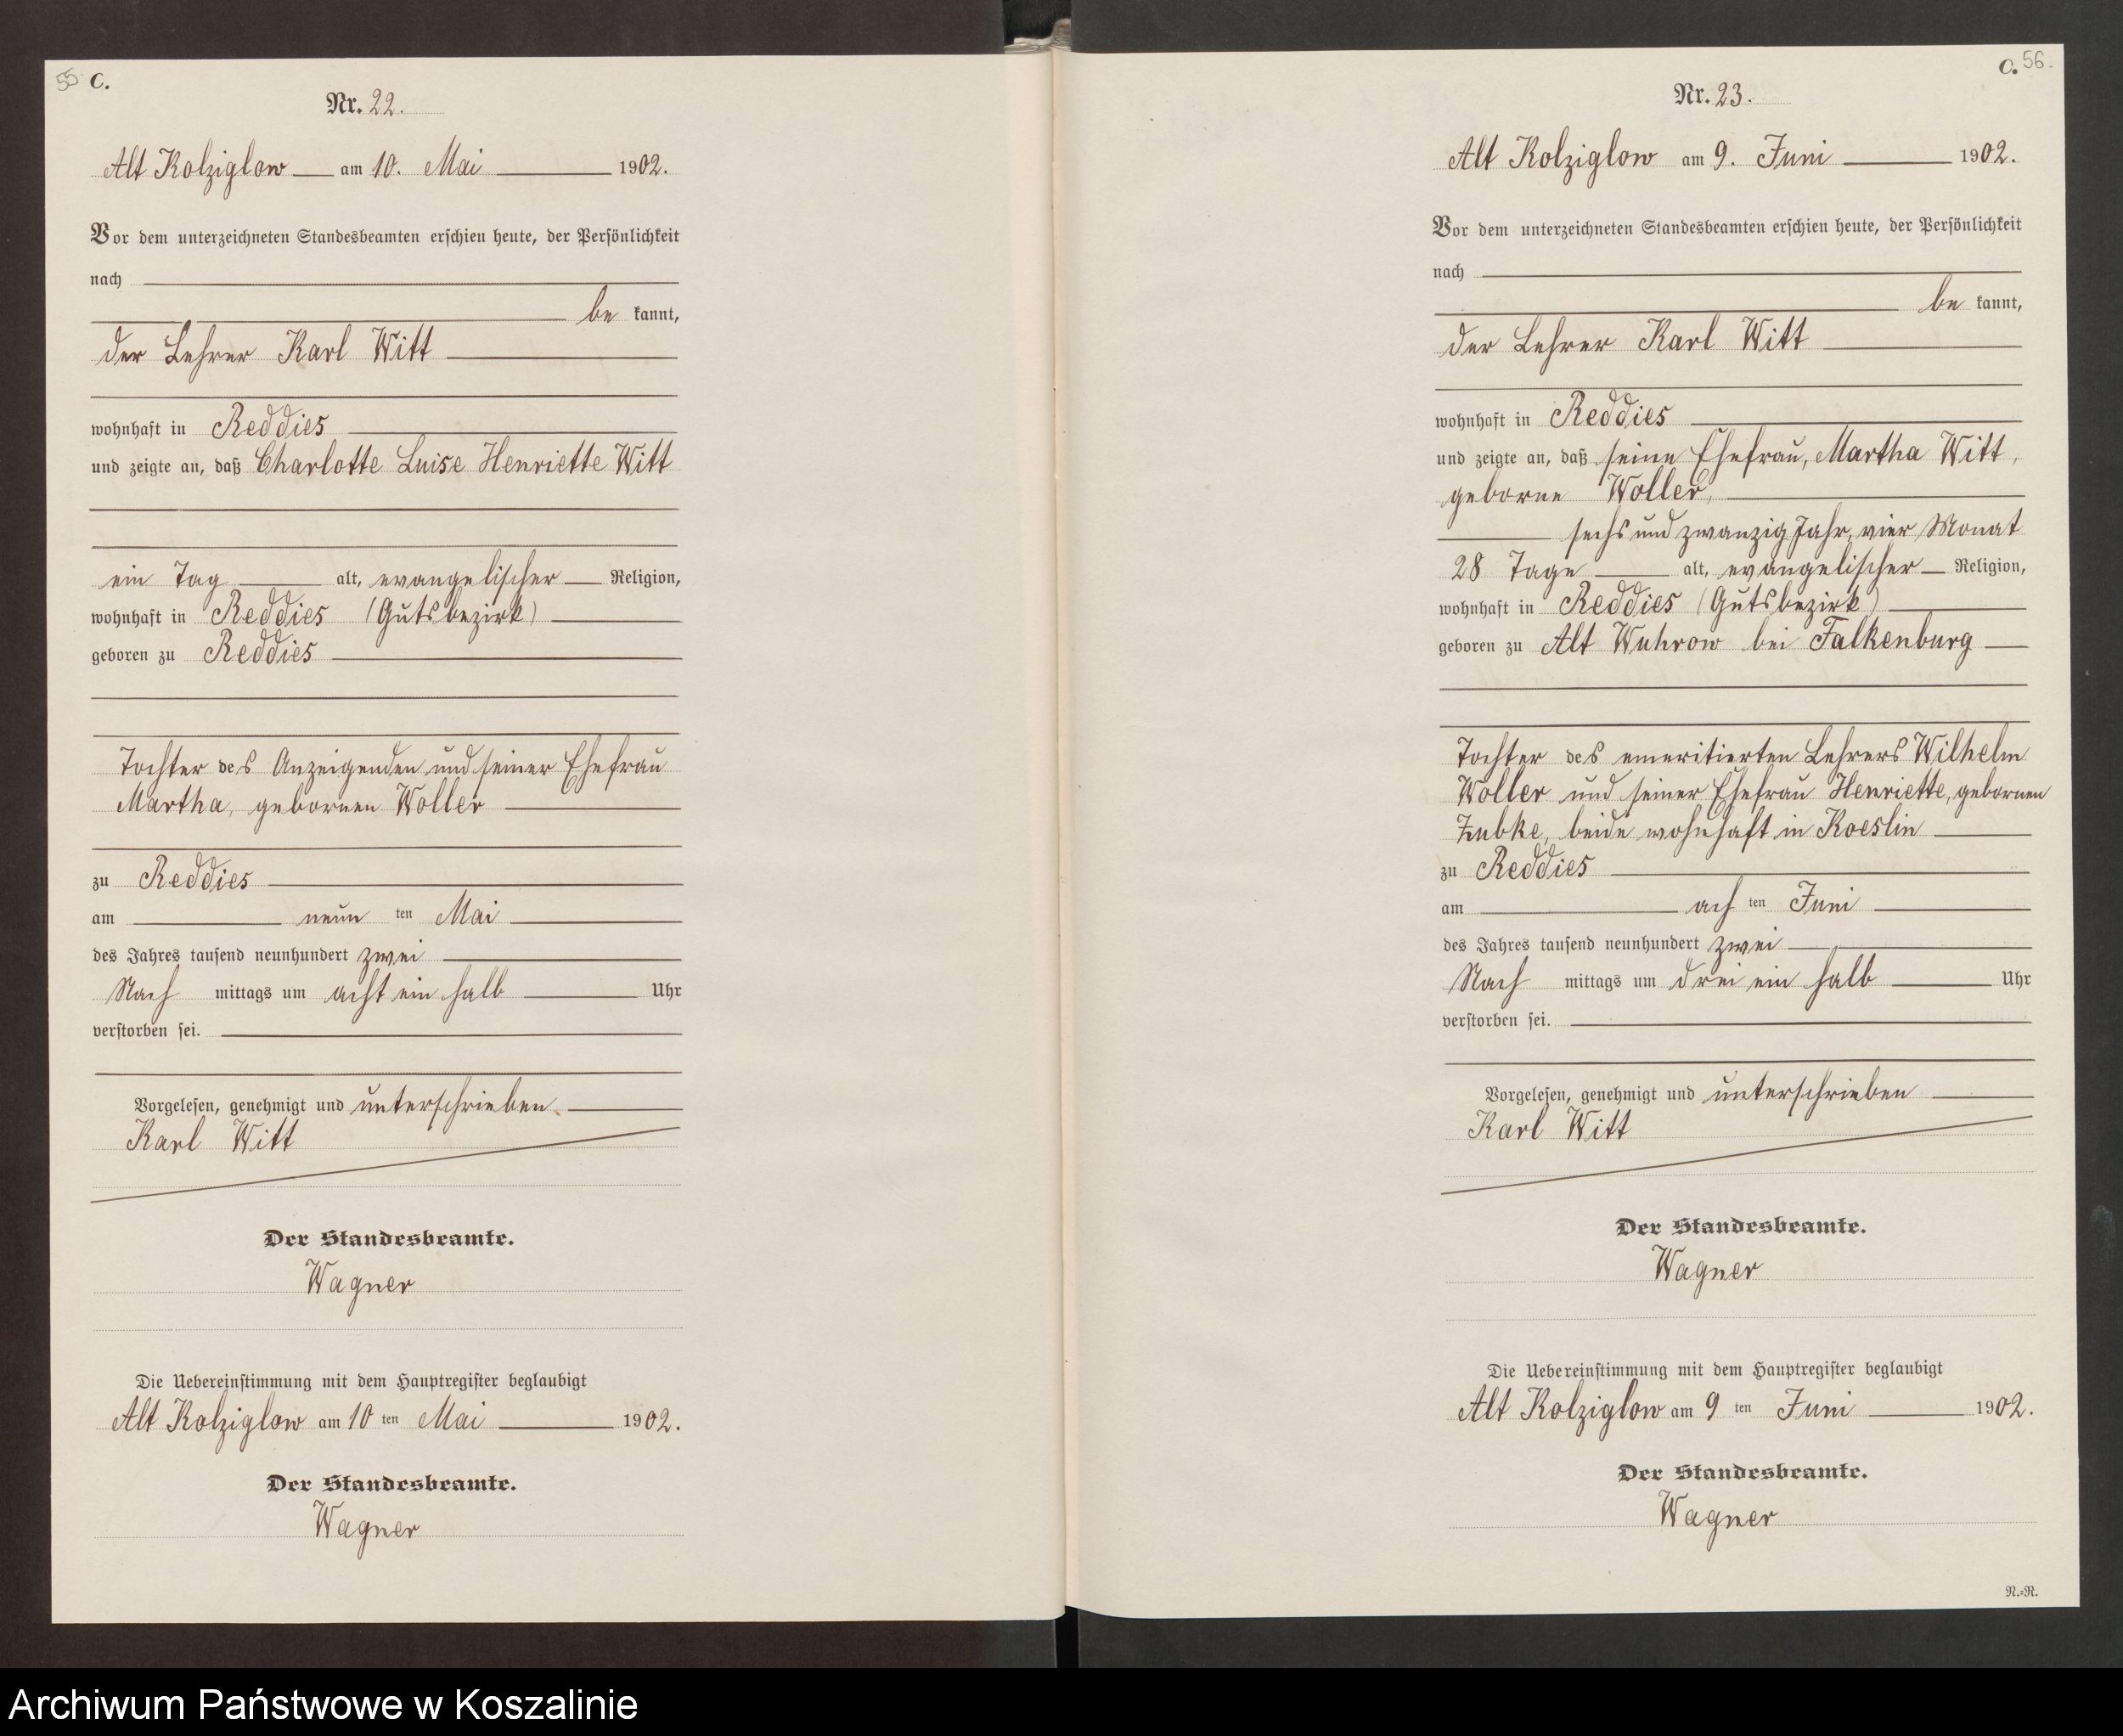 55 C.
Nr. 22.
Alt Kolziglow am 10. Mai 1902.
Vor dem unterzeichneten Standesbeamten erschien heute, der Persönlichkeit
nach
be kannt,
der Lehrer Karl Witt
wohnhaft in Reddies
und zeigte an, daß Charlotte Luise Henriette Witt
ein Tag alt, evangelischer Religion,
wohnhaft in Reddies (Gutsbezirk)
geboren zu Reddies
Tochter des Anzeigenden und seiner Ehefrau
Martha, gebornen Woller
zu Reddies
am neun ten Mai
des Jahres tausend neunhundert zwei
Nach mittags um acht ein halb Uhr
verstorben sei.
Vorgelesen, genehmigt und unterschrieben
Karl Witt
Der Standesbeamte.
Wagner
Die Uebereinstimmung mit dem Hauptregister beglaubigt
Alt Kolziglow am 10 ten Mai 1902.
Der Standesbeamte.
Wagner
C. 56.
Nr. 23.
Alt Kolziglow am 9. Juni 1902.
Vor dem unterzeichneten Standesbeamten erschien heute, der Persönlichkeit
nach
be kannt,
der Lehrer Karl Witt
wohnhaft in Reddies
und zeigte an, daß seine Ehefrau, Martha Witt,
geborne Woller,
sechs und zwanzig Jahr, vier Monat
28 Tage alt, evangelischer Religion,
wohnhaft in Reddies (Gutsbezirk)
geboren zu Alt Wuhrow bei Falkenburg
Tochter des emeritierten Lehrers Wilhelm
Woller und seiner Ehefrau Henriette, gebornen
Zubke, beide wohnhaft in Koeslin
zu Reddies
am ach ten Juni
des Jahres tausend neunhundert zwei
Nach mittags um drei ein halb Uhr
verstorben sei.
Vorgelesen, genehmigt und unterschrieben
Karl Witt
Der Standesbeamte.
Wagner
Die Uebereinstimmung mit dem Hauptregister beglaubigt
Alt Kolziglow am 9 ten Juni 1902.
Der Standesbeamte.
Wagner
N.=N.
Archiwum Państwowe w Koszalinie